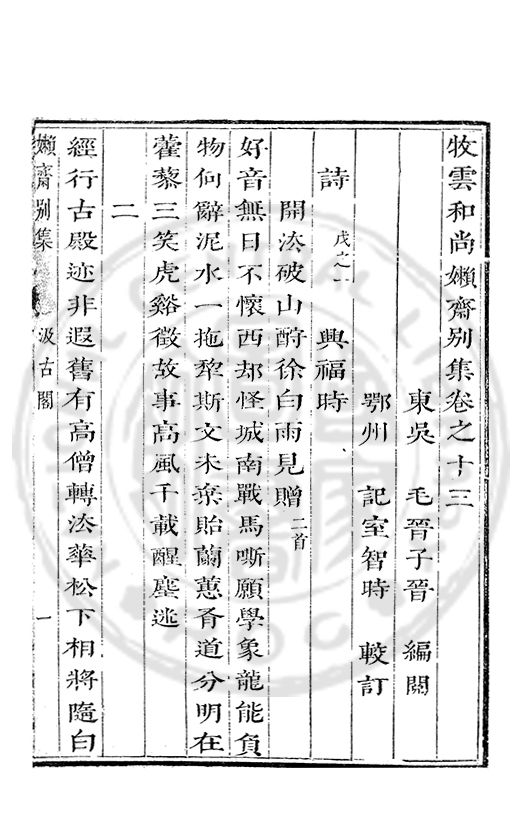 牧雲和尚嬾齋别集卷之十三
東吳　毛晉子晉　編閱
鄂州　記室智時　較訂
詩　戊之一　興福時
開法破山酧徐白雨見贈二首
好音無日不懷西却怪城南戰馬嘶願學象龍能負
物何辭泥水一拖犂斯文未棄貽蘭蕙吾道分明在
藿藜三笑虎谿徵故事高風千載醒塵迷
二
經行古殿迹非遐舊有高僧轉法華松下相將隨白
嬾齋别集
汲古閣
一